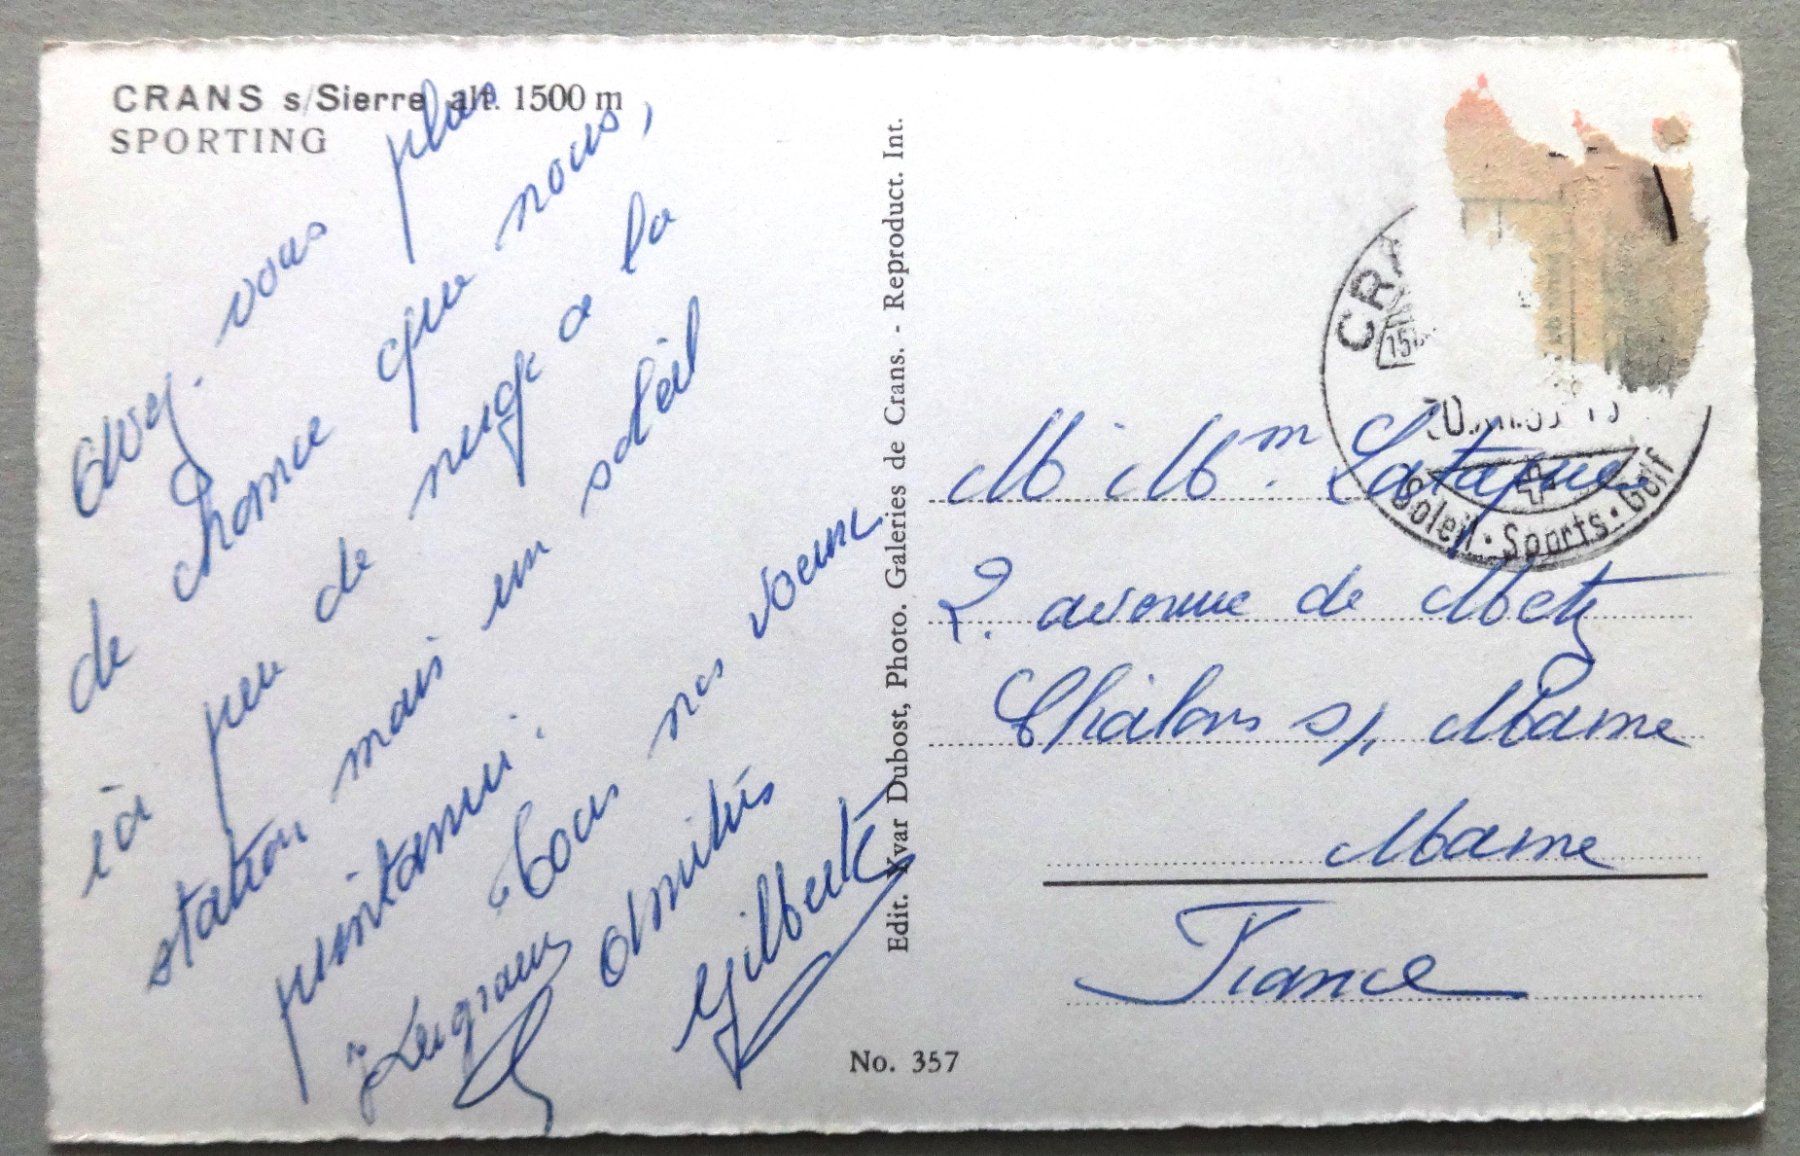 CRANS s/Sierre alt. 1500 m
SPORTING
vous plus
de chance que nous,
ici peu de neige a la
station mais un soleil
printanier.
Tous nos voeux
Amitiés
Gilbert
Edit. Kvar Dubost, Photo. Galeries de Crans. - Reproduct. Int.
No. 357
CRA
Soleil · Sports · Golf
M M^m.
2. avenue de Metz
Châlons s/. Marne
Marne
France